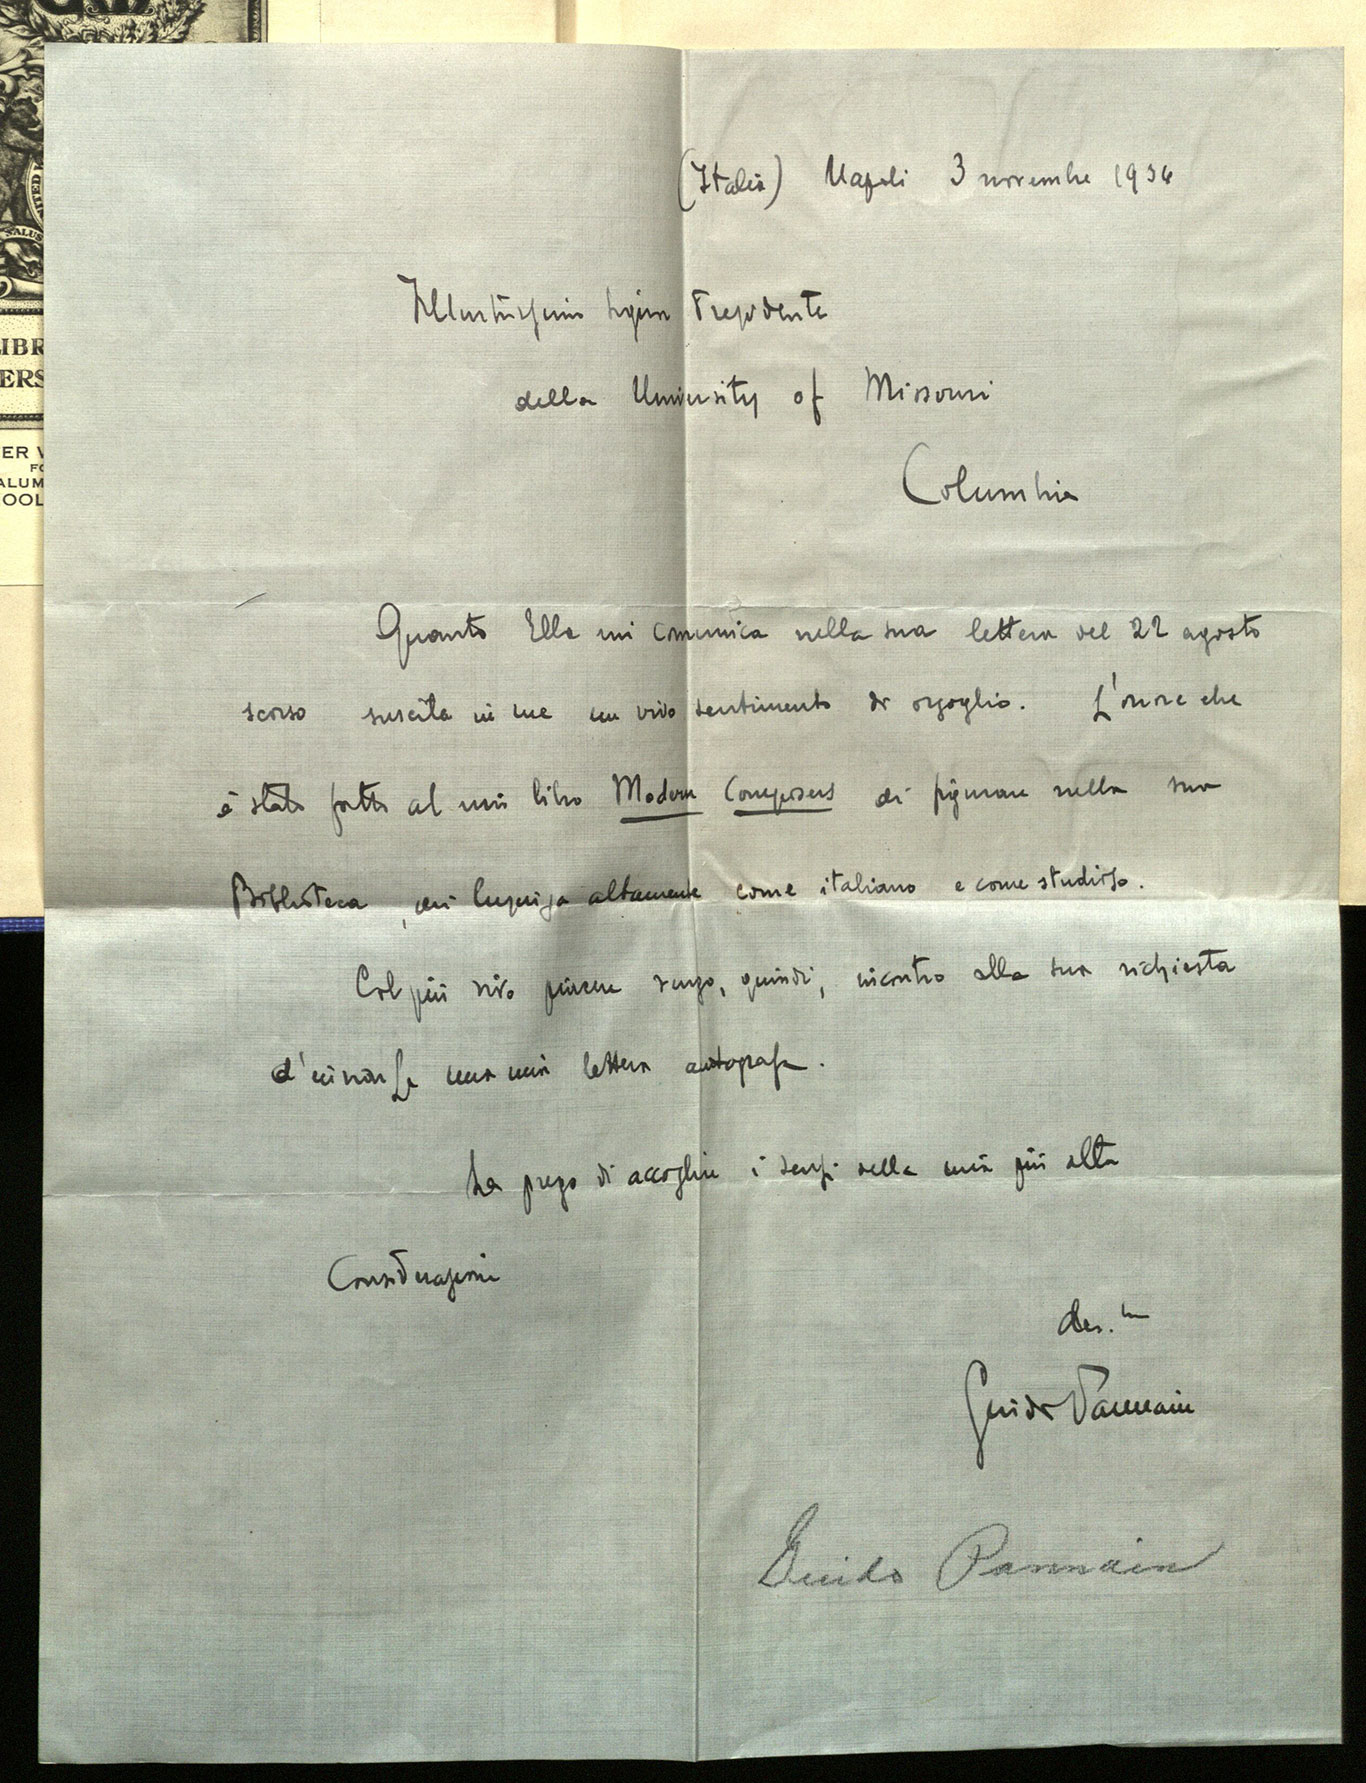 SALUS
LIBR
ERS
ER V
FO
ALUM
OOL
(Italia) Napoli 3 novembre 1934
Illustrissimo Signor Presidente
della University of Missouri
Columbia
Quanto Ella mi comunica nella sua lettera del 22 agosto
scorso suscita in me un vivo sentimento di orgoglio. L'onore che
è stato fatto al mio libro Modern Composers di figurare nella sua
Biblioteca, mi lusinga altamente come italiano e come studioso.
Col più vivo piacere vengo, quindi, incontro alla sua richiesta
d'inviarle una mia lettera autografa.
La prego di accogliere i sensi della mia più alta
Considerazione
dev.mo
Guido Pannain
Guido Pannain